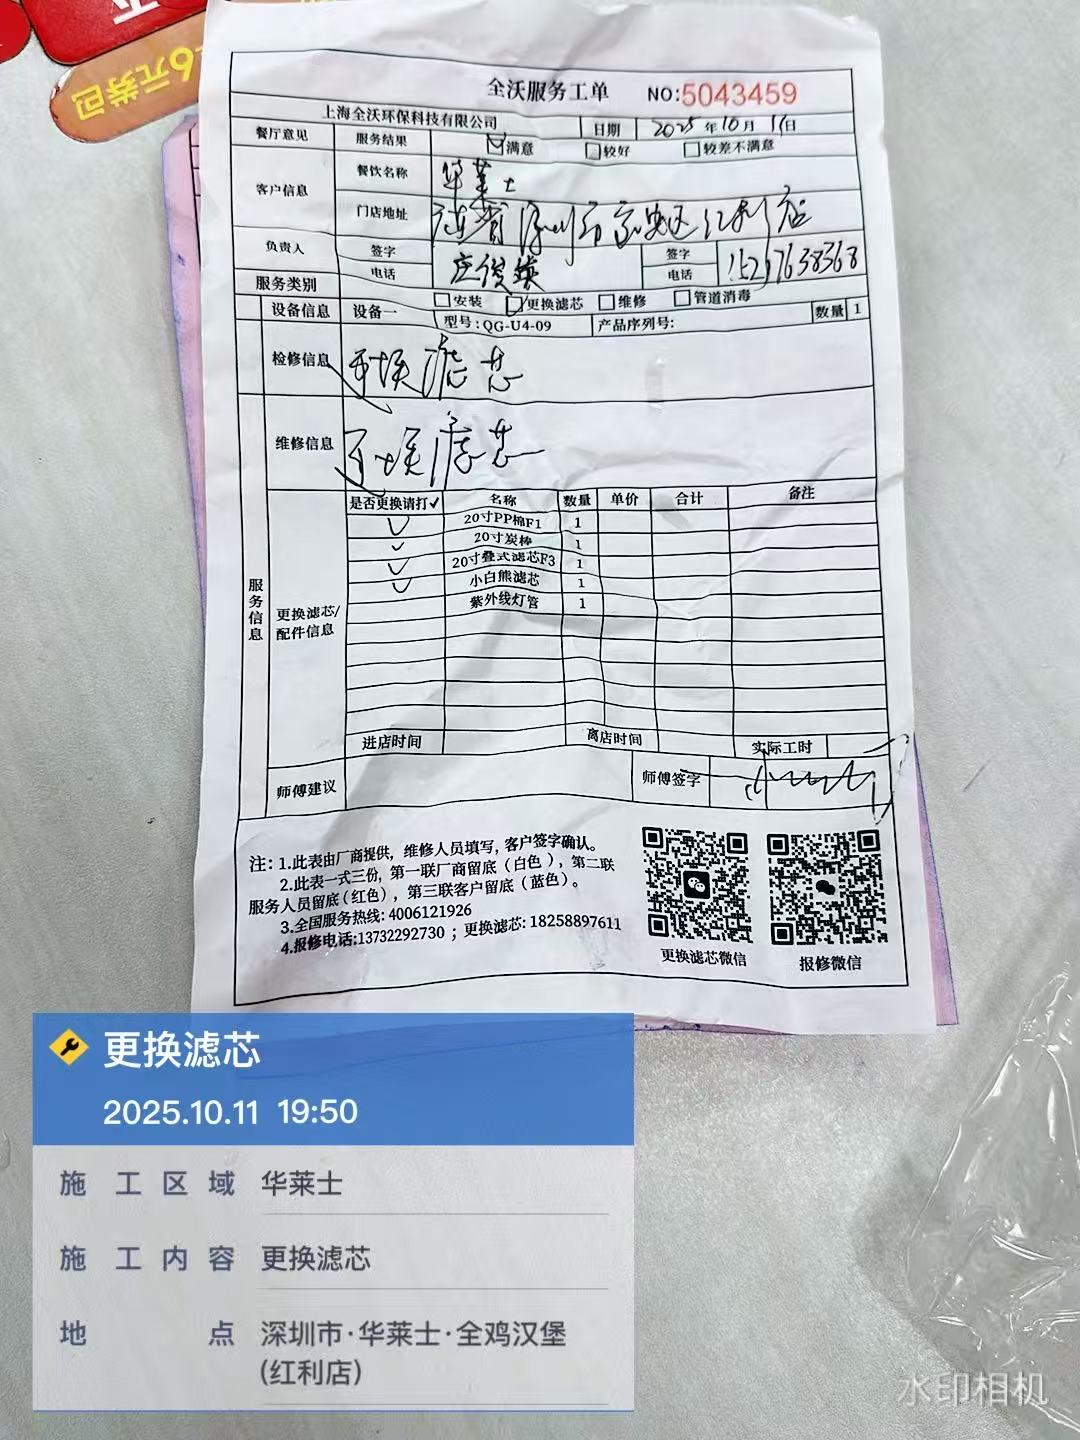 6元券已
全沃服务工单 NO:5043459
上海全沃环保科技有限公司 日期 2025年10月11日
餐厅意见 服务结果 满意 较好 较差不满意
客户信息 餐饮名称 华莱士
门店地址 广东省深圳市宝安区红利店
负责人 签字 签字
电话 电话 15217638368
服务类别 安装 更换滤芯 维修 管道消毒
设备信息 设备一 型号:QG-U4-09 产品序列号: 数量 1
检修信息 更换滤芯
维修信息 更换滤芯
服务信息
更换滤芯/配件信息
是否更换请打✓ 名称 数量 单价 合计 备注
✓ 20寸PP棉F1 1
✓ 20寸炭棒 1
✓ 20寸叠式滤芯F3 1
✓ 小白熊滤芯 1
紫外线灯管 1
进店时间 离店时间 实际工时
师傅建议 师傅签字
注:1.此表由厂商提供,维修人员填写,客户签字确认。
2.此表一式三份,第一联厂商留底(白色),第二联
服务人员留底(红色),第三联客户留底(蓝色)。
3.全国服务热线:4006121926
4.报修电话:13732292730;更换滤芯:18258897611
更换滤芯微信 报修微信
更换滤芯
2025.10.11 19:50
施工区域 华莱士
施工内容 更换滤芯
地点 深圳市·华莱士·全鸡汉堡
(红利店)
水印相机